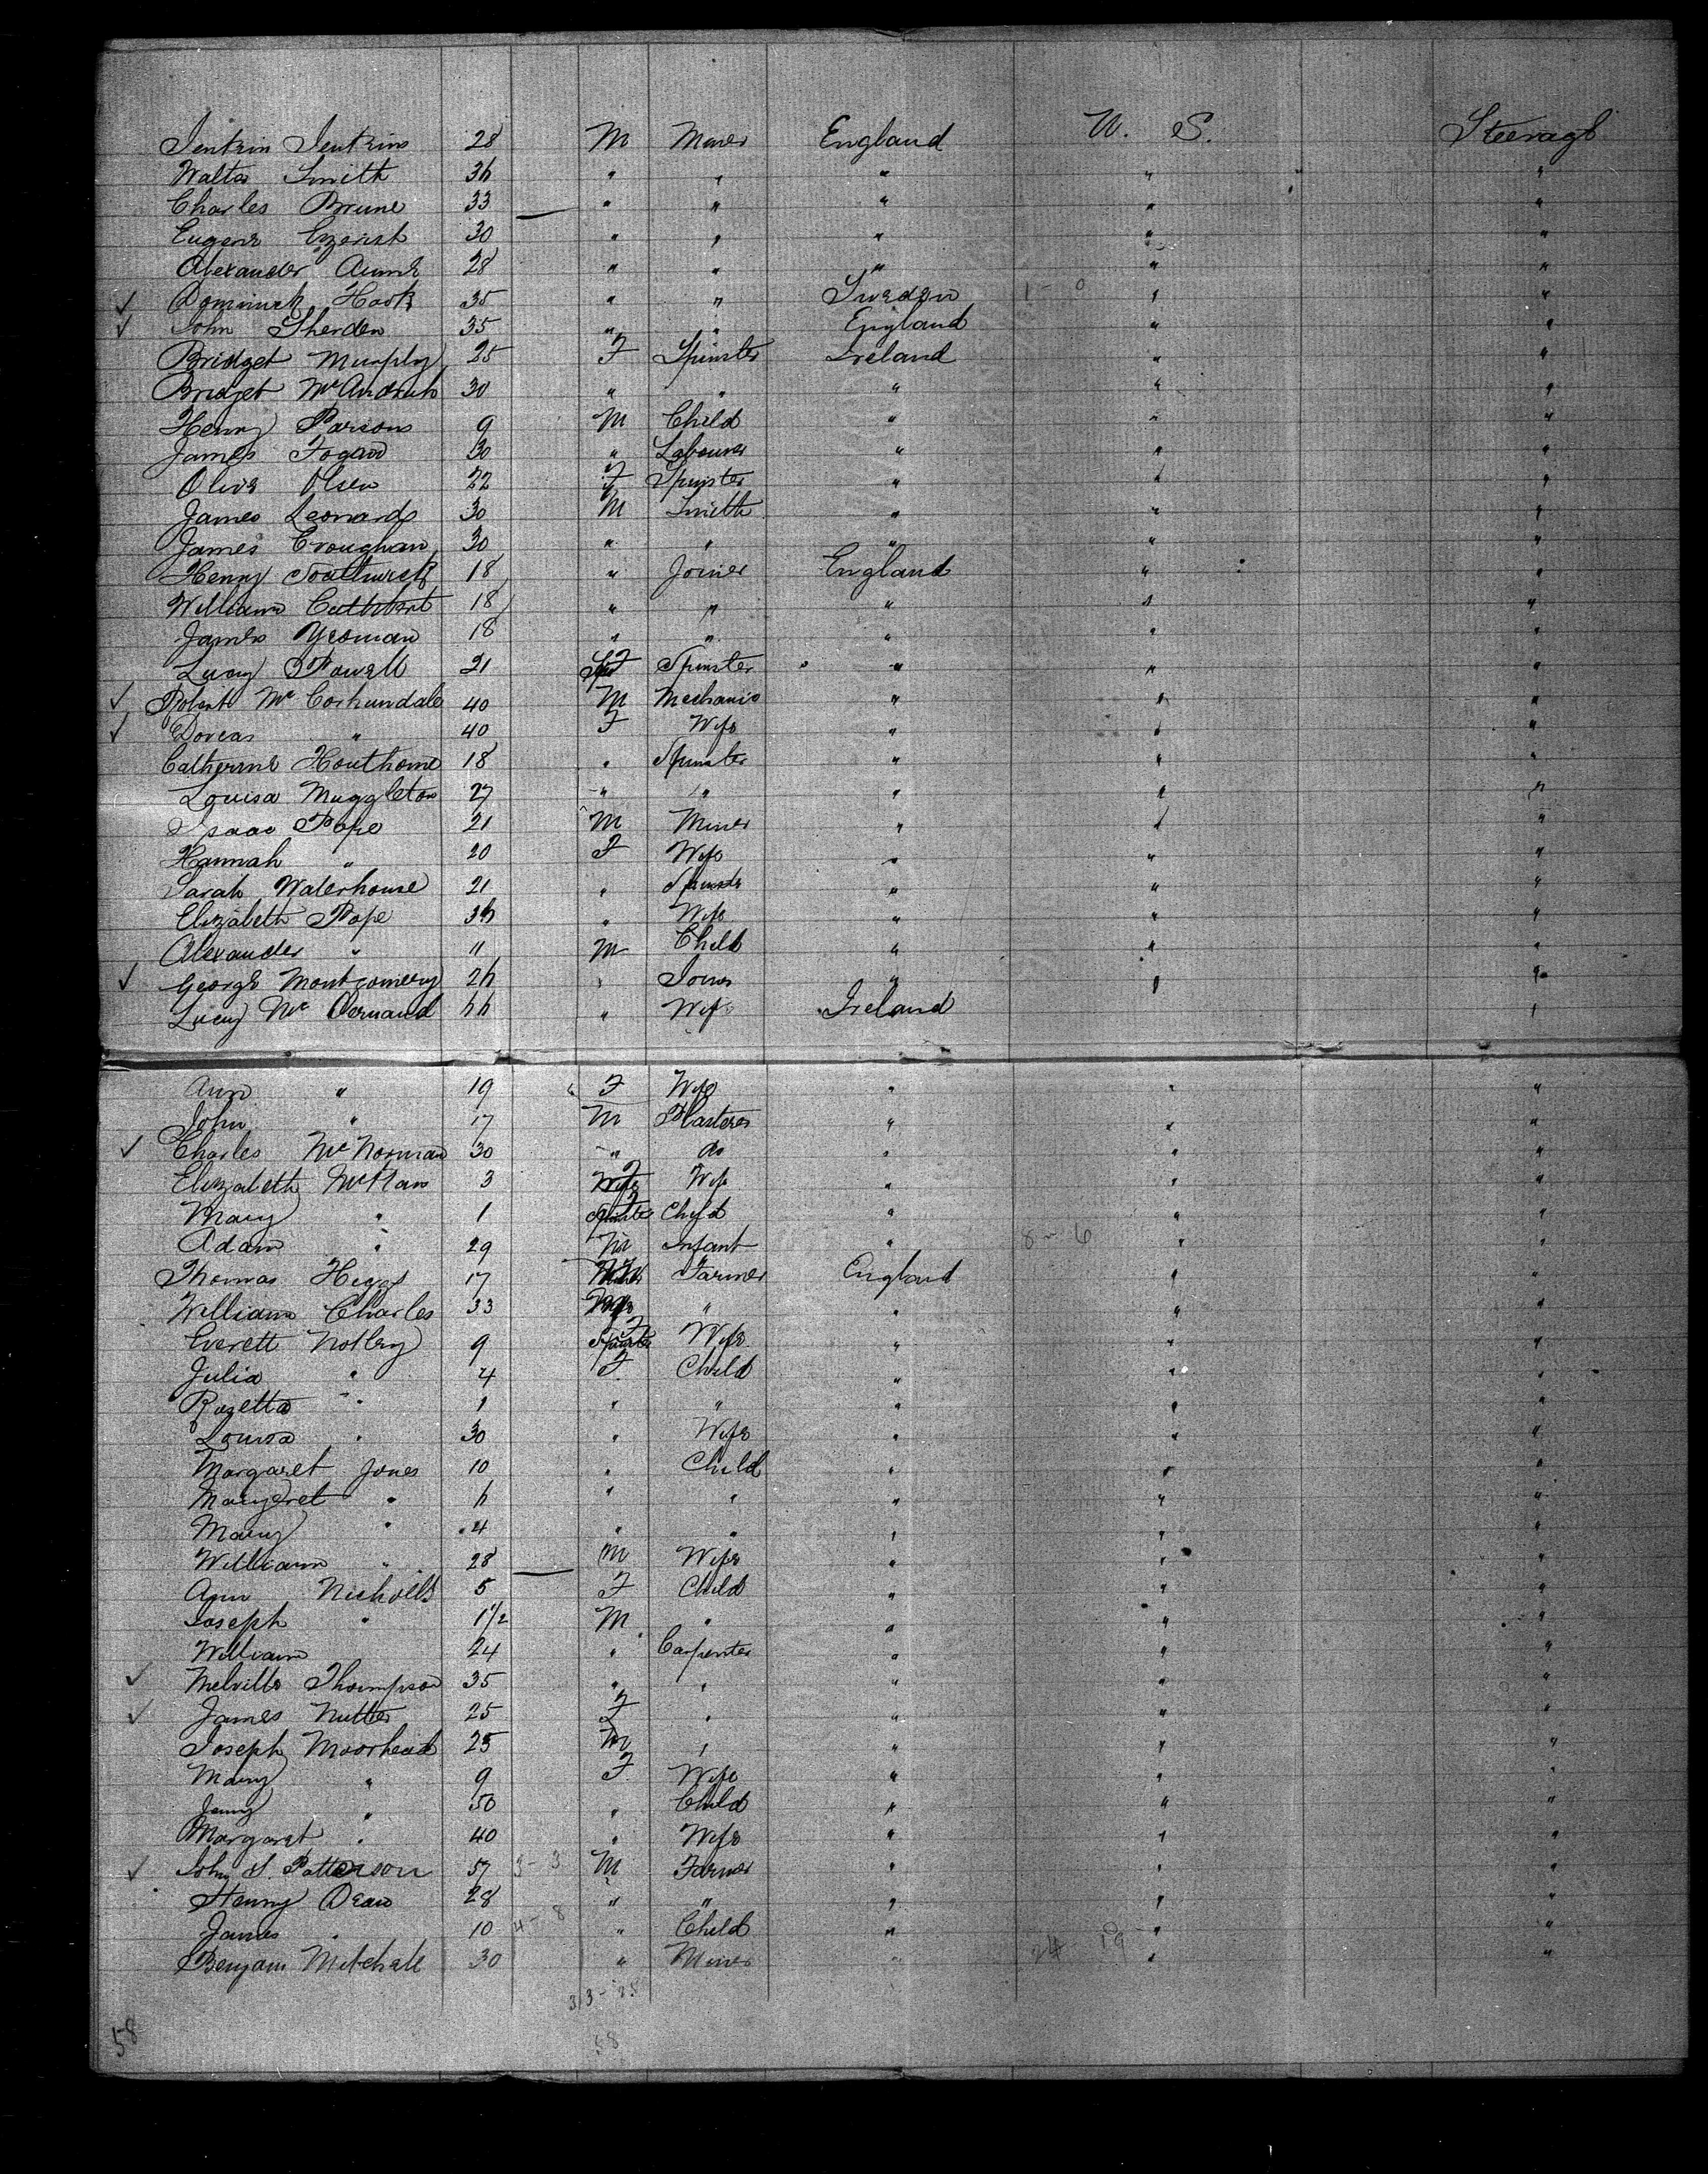 Jenkin Jenkins 28 M Miner England U. S. Steerage
Walter Smith 34 " " " " "
Charles Brune 33 " " " " "
Eugene 30 " " " " "
Alexander 28 " " " " "
✓ Dominick Hook 35 " " Sweden 1 - 0 " "
✓ John Sherden 35 " " England " "
Bridget Murphy 25 F Spinster Ireland " "
Bridget McAndrew 30 " " " " "
Henry Parsons 9 M Child " " "
James Fogan 30 " Labourer " " "
Olive Olsen 22 F Spinster " " "
James Leonard 30 M Smith " " "
James Croughan 30 " " " " "
Henry 18 " Joiner England " "
William Cuthbert 18 " " " " "
James Yeoman 18 " " " " "
Lucy Powell 21 F Spinster " " "
✓ Robert Mc Corhundale 40 M Mechanic " " "
✓ Dorcas " 40 F Wife " " "
Catherine Houthome 18 " Spinster " " "
Louisa Muggleton 27 " " " " "
Isaac Pope 21 M Miner " " "
Hannah " 20 F Wife " " "
Sarah Waterhouse 21 " Spinster " " "
Elizabeth Pope 34 " Wife " " "
Alexander " 11 M Child " " "
✓ George Montgomery 24 " Joiner " " "
Lucy Mc Dermand 44 " Wife Ireland " "
Ann " 19 F Wife " " "
John " 17 M Plasterer " " "
✓ Charles Mc Norman 30 " do " " "
Elizabeth McHan 3 F Wife " " "
Mary " 1 F Child " " "
Adam " 29 M Infant " 8 - 6 " "
Thomas Higgs 17 M Farmer England " "
William Charles 33 " " " "
Everett Notley 9 F Wife " " "
Julia " 4 F. Child " " "
Rosetta " 1 " " " " "
Louisa " 30 " Wife " " "
Margaret Jones 10 " Child " " "
Margeret " 4 " " " " "
Mary " 4 " " " " "
William " 28 M Wife " " "
Ann Nicholls 5 F Child " " "
Joseph " 1 1/2 M " " " "
William 24 " Carpenter " " "
✓ Melville Thompson 35 " " " " "
✓ James Nutter 25 F " " " "
Joseph Moorhead 25 M " " " "
Mary " 9 F. Wife " " "
Jenny " 50 " Child " " "
Margaret " 40 " Wife " " "
✓ John S. Patterson 57 3 - 3 M Farmer " " "
Henry Dean 28 " " " " "
James " 10 4 - 8 " Child " " "
Benjam Mitchell 30 " Miner " 24 19 " "
58
58